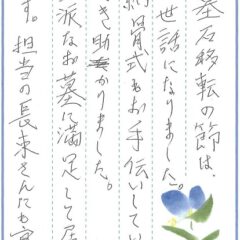 墓石移転の節は、
世話になりました。
納骨式もお手伝いしてい
き助かりました。
派なお墓に満足して居
す。担当の長束さんにも